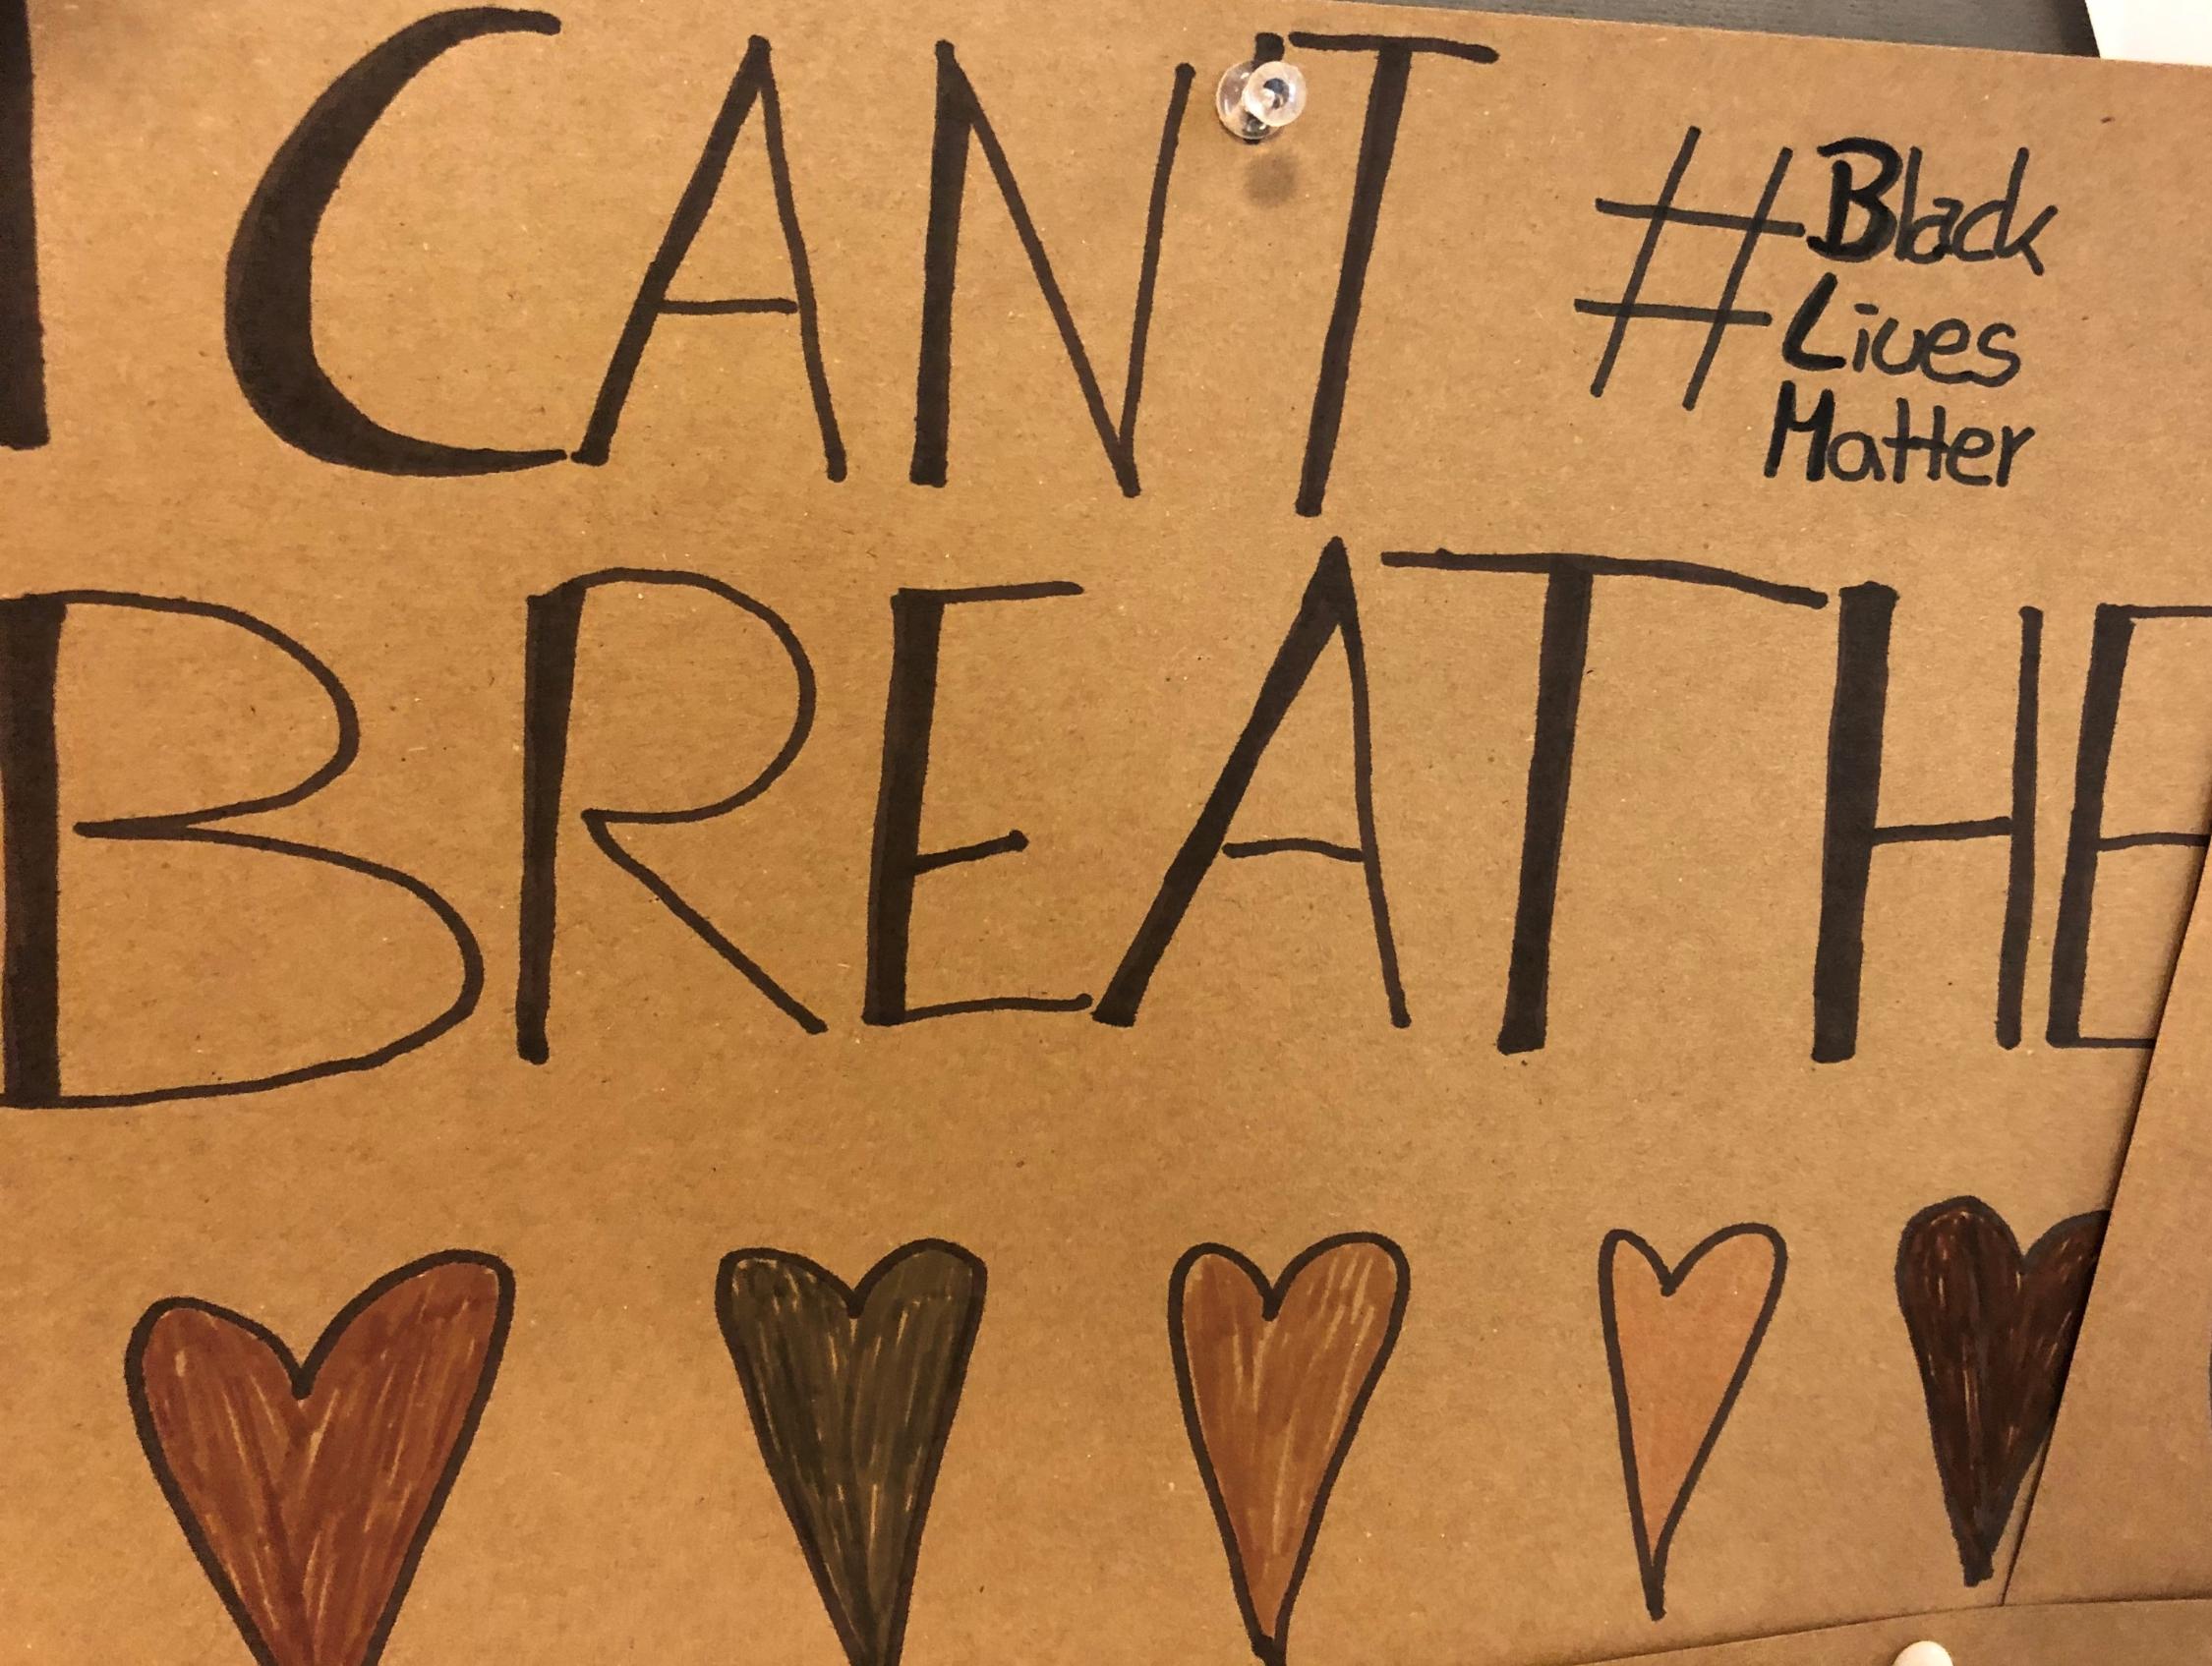 I CAN'T
BREATHE
#Black
Lives
Matter